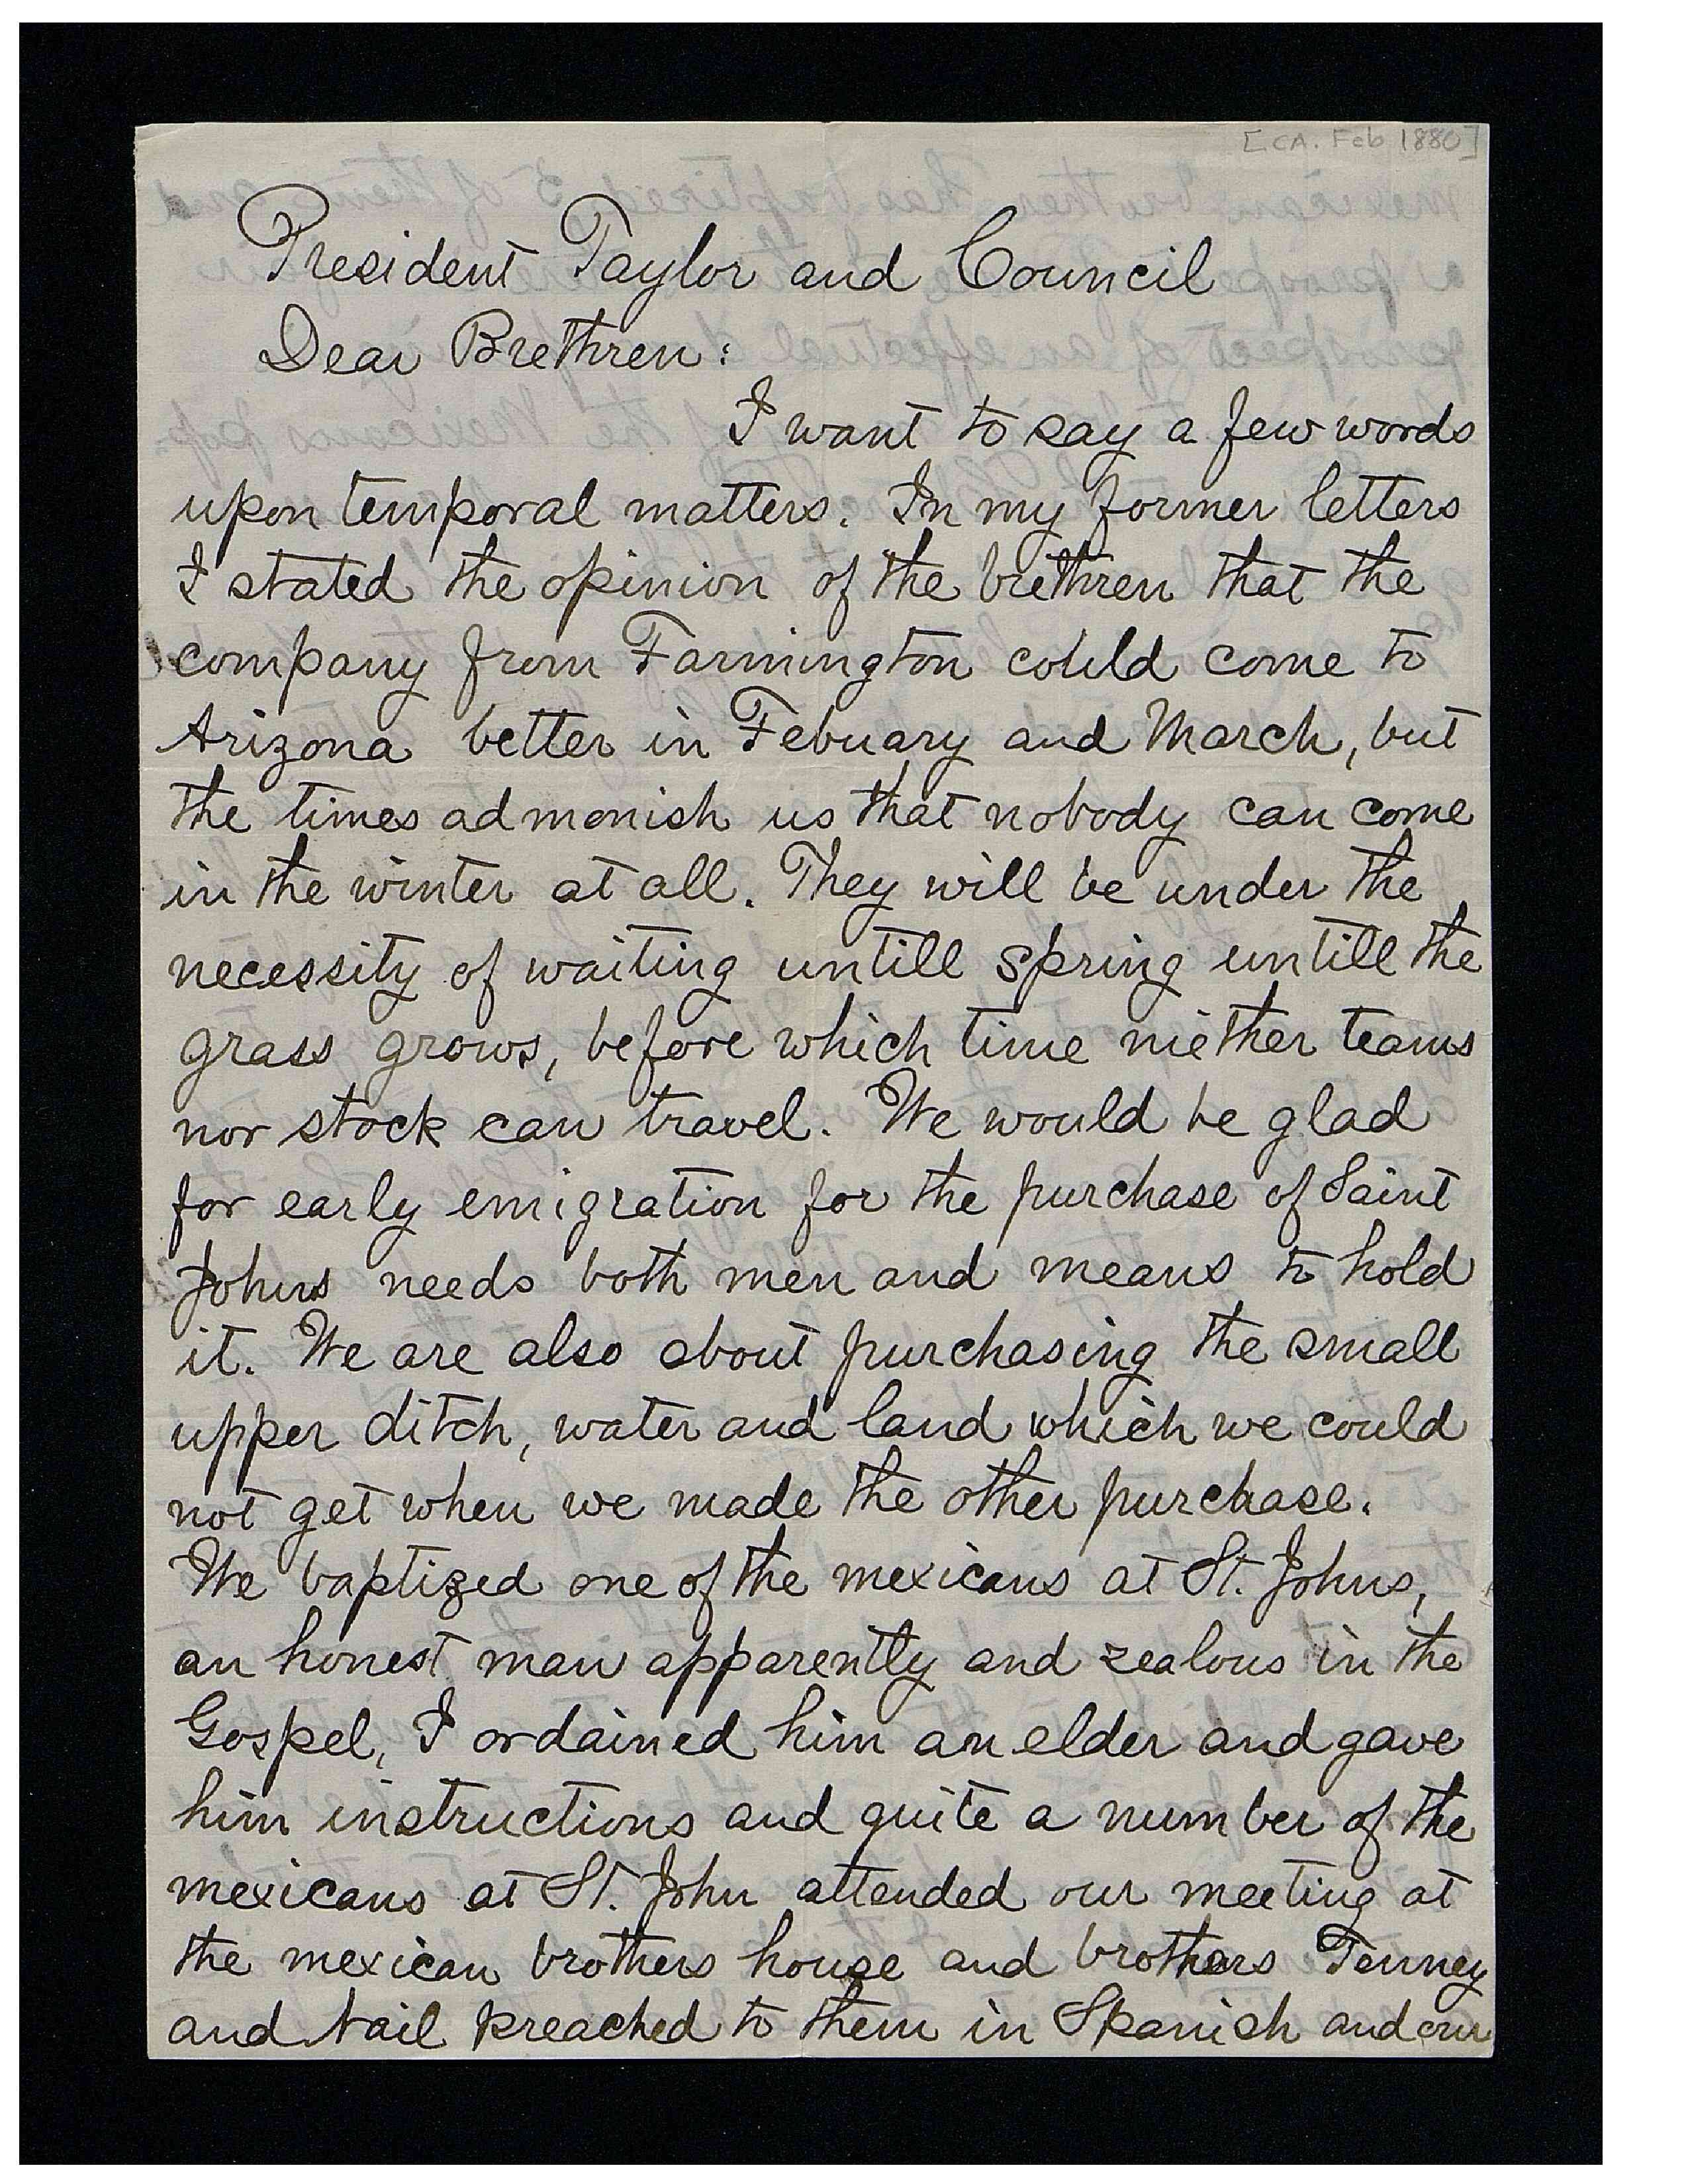 [CA. Feb 1880]
President Taylor and Council
Dear Brethren:
I want to say a few words
upon temporal matters. In my former letters
I stated the opinion of the brethren that the
company from Farmington could come to
Arizona better in Febuary and March, but
the times admonish us that nobody can come
in the winter at all. They will be under the
necessity of waiting untill spring untill the
grass grows, before which time niether teams
nor stock can travel. We would be glad
for early emigration for the purchase of Saint
Johns needs both men and means to hold
it. We are also about purchasing the small
upper ditch, water and land which we could
not get when we made the other purchase.
We baptized one of the mexicans at St. Johns,
an honest man apparently and zealous in the
Gospel, I ordained him an elder and gave
him instructions and quite a number of the
mexicans at St. John attended our meeting at
the mexican brothers house and brothers Tenney
and Nail preached to them in Spanish and our